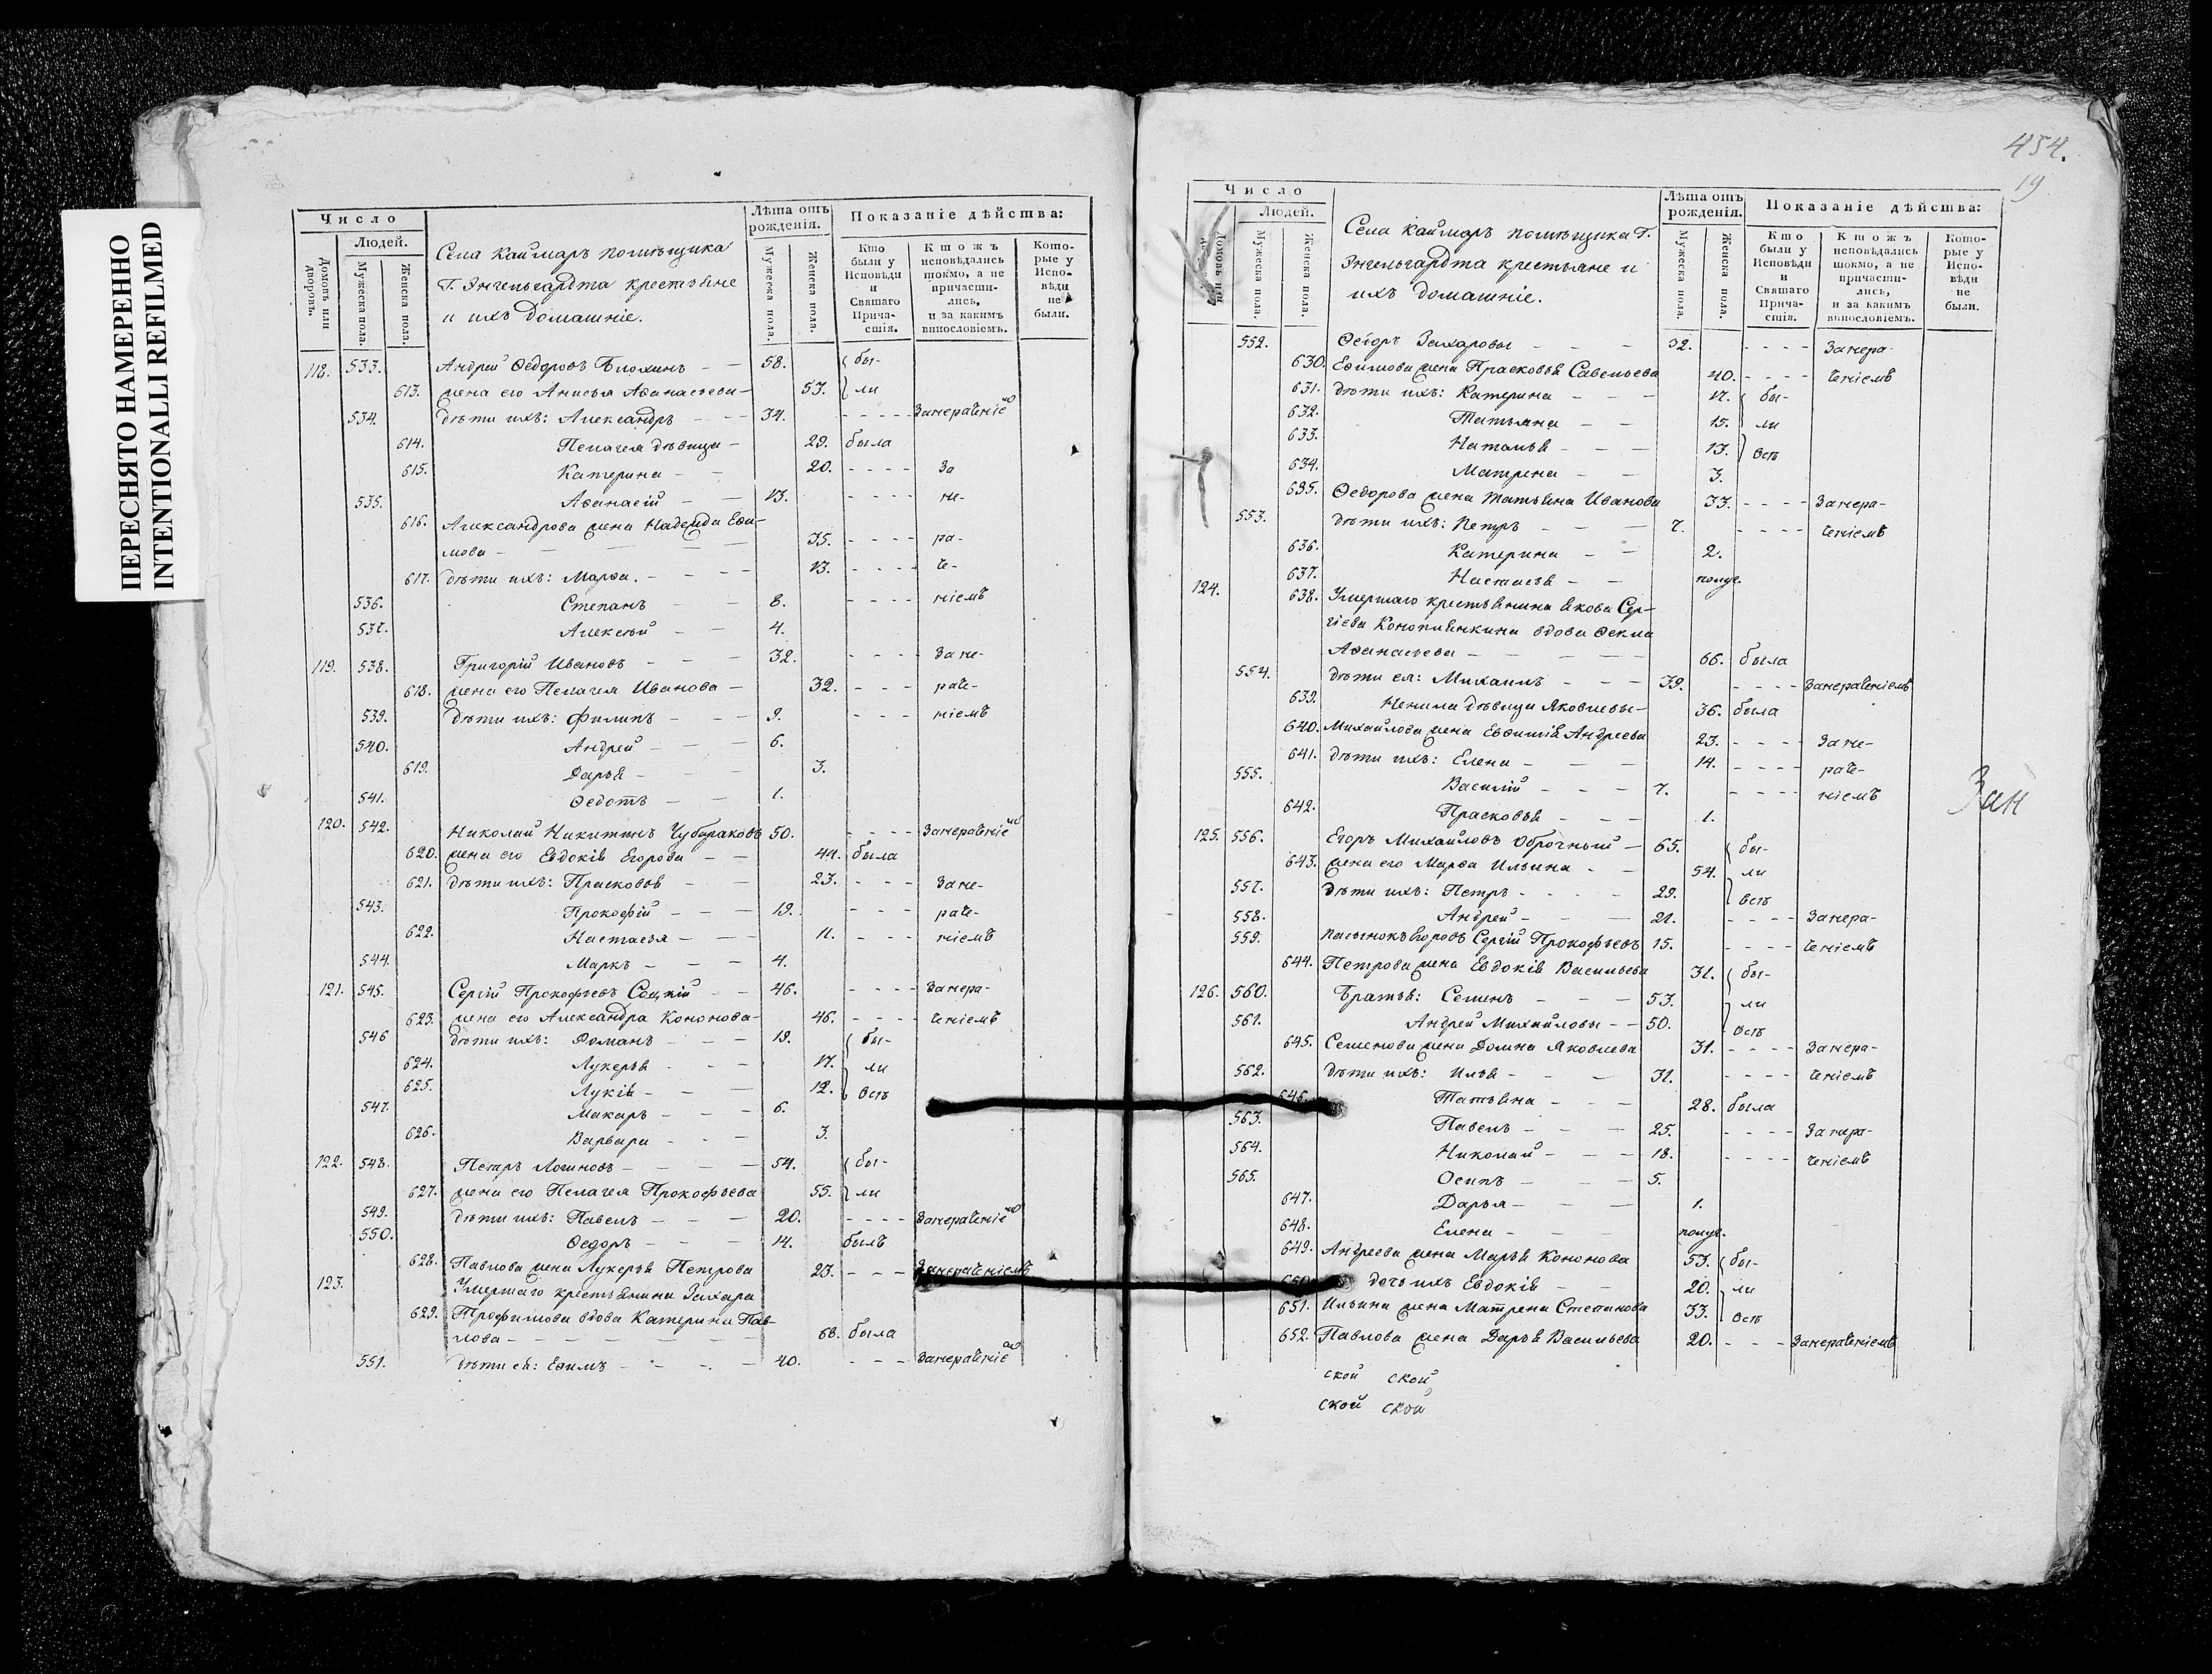 ПЕРЕСНЯТО НАМЕРЕННО
INTENTIONALLI REFILMED
Число
Людей.
Домовъ или дворовъ.
Мужеска пола.
Женска пола.
Села Каймаръ помѣщика
Г. Энгельгардта крестьяне
и ихъ домашніе.
Лѣта отъ рожденія.
Мужеска пола.
Женска пола.
Показаніе дѣйства:
Кто были у Исповѣди и Святаго Прича-стія.
Ктожъ исповѣдались токмо, а не причасти-лись, и за какимъ винословіемъ.
Кото-рые у Испо-вѣди не были.
118. 533. Андрей Ѳедоровъ Блохинъ — — 58. бы-
613. жена его Анисья Аѳанасьева — 53. ли
534. дѣти ихъ: Александръ — — 34. - - - - Занераченіемъ
614. Пелагея дѣвица — 29. была
615. Катерина — — 20. - - - - За
535. Аѳанасій — — 13. - - - - не-
616. Александрова жена Надежда Еѳи-
мова — — — — 35. - - - - ра-
617. дѣти ихъ: Марѳа. — — — 13. - - - - че-
536. Степанъ — — 8. - - - - ніемъ
537. Алексѣй — — 4.
119. 538. Григорій Ивановъ — — — 32. - - - - Зане-
618. жена его Пелагея Иванова — 32. - - - раче-
539. дѣти ихъ: Филипъ — — — 9. - - - ніемъ
540. Андрей — — — 6.
619. Дарья — — — 3.
541. Ѳедотъ — — — 1.
120. 542. Николай Никитинъ Чубураковъ 50. - - - - Занераченіемъ
620. жена его Евдокія Егорова — — 44. была
621. дѣти ихъ: Прасковья — — 23. - - - Зане-
543. Прокофій — — — 19. - - - раче-
622. Настасья — — — 11. - - - ніемъ
544. Маркъ — — — 4.
121. 545. Сергій Прокофьевъ Соцкій — — 46. - - - - Занера-
623. жена его Александра Кононова — 46. - - - - ченіемъ
546 дѣти ихъ: Романъ — — — 19. бы-
624. Лукерья — — — 17. ли
625. Лукія — — — 12. всѣ
547. Макаръ — — — 6.
626. Варвара — — — 3.
122. 548. Петръ Логиновъ — — — — 54. бы-
627. жена его Пелагея Прокофьева 55. ли
549. дѣти ихъ: Павелъ — — — 20. - - - - Занераченіемъ
550. Ѳедоръ — — — 14. былъ
628. Павлова жена Лукерья Петрова 23. - - - Занераченіемъ
123. Умершаго крестьянина Захара
629. Трофимова вдова Катерина Пав-
лова — — — — — — 68. была
551. дѣти ея: Еѳимъ — — — — 40. - - - Занераченіемъ
454.
19
Число
Людей.
Мужеска пола.
Женска пола.
Села Каймаръ помѣщика Г.
Энгельгардта крестьяне и
ихъ домашніе.
Лѣта отъ рожденія.
Мужеска пола.
Женска пола.
Показаніе дѣйства:
Кто были у Исповѣди и Святаго Прича-стія.
Ктожъ исповѣдались токмо, а не причасти-лись, и за какимъ винословіемъ.
Кото-рые у Испо-вѣди не были.
552. Ѳедоръ Захаровы — — — 32. - - - - Занера-
630. Еѳимова жена Прасковья Савельева 40. - - - - ченіемъ
631. дѣти ихъ: Катерина — — — 17. бы-
632. Татьяна — — 15. ли
633. Наталья — — — 13. всѣ
634. Матрена — — 3.
635. Ѳедорова жена Татьяна Иванова 33. - - - - Занера-
553. дѣти ихъ: Петръ — — — — 7. - - - - ченіемъ
636. Катерина — — 2.
637. Настасья — — полуг.
124. 638. Умершаго крестьянина Якова Сер-
гіева Коноплянкина вдова Ѳекла
Аѳанасьева — — — — — 66. была
554. дѣти ея: Михаилъ — — — 39. - - - - Занераченіемъ
639. Ненила дѣвица Яковлевы — 36. была
640. Михайлова жена Евѳимія Андреева 23. - - - - Зане-
641. дѣти ихъ: Елена — — — 14. - - - - раче-
555. Василій — — — 7. - - - - ніемъ
642. Прасковья — — — 1.
Зан
125. 556. Егоръ Михайловъ Оброчный — 65. бы-
643. жена его Марѳа Ильина — — 54. ли
557. дѣти ихъ: Петръ - - - - 29. всѣ
558. Андрей — — — 21. - - - - Занера-
559. пасынокъ Егоровъ Сергій Прокофьевъ 15. - - - - ченіемъ
644. Петрова жена Евдокія Васильева 31. бы-
126. 560. Братья: Семенъ — — — 53. ли
561. Андрей Михайловы — — 50. всѣ
645. Семенова жена Домна Яковлева 31. - - - - Занера-
562. дѣти ихъ: Илья — — — 31. - - - - ченіемъ
646. Татьяна — — — 28. была
563. Павелъ — — — 25. - - - - Занера-
564. Николай — — — 18. - - - - ченіемъ
565. Осипъ — — — 5.
647. Дарья — — — 1.
648. Елена — — — полуг.
649. Андреева жена Марья Кононова 53. бы-
650. дочь ихъ Евдокія — — 20. ли
651. Ильина жена Матрена Степанова 33. всѣ
652. Павлова жена Дарья Васильева 20. - - - Занераченіемъ
ской ской
ской ской